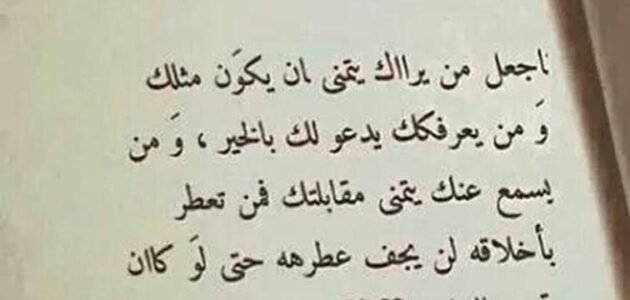 ناجعل من يرااك يتمنى ان يكوَن مثلك
وَ من يعرفكك يدعو لك بالخير ، وَ من
يسمع عنك يتمنى مقابلتك فمن تعطر
بأخلاقه لن يجف عطرهه حتى لوَ كاان